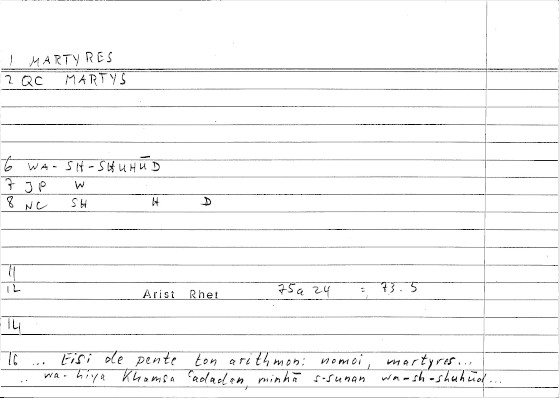 1 MARTYRES
2 QC MARTYS
6 WA-SH-SHUHŪD
7 JP W
8 NC SH H D
11
12 Arist Rhet 75a24 = 73.5
14
16 ... Eisi de pente ton arithmon: nomoi, martyres...
.. wa-hiya Khamsa ʿadadan, minhā s-sunan wa-sh-shuhūd...